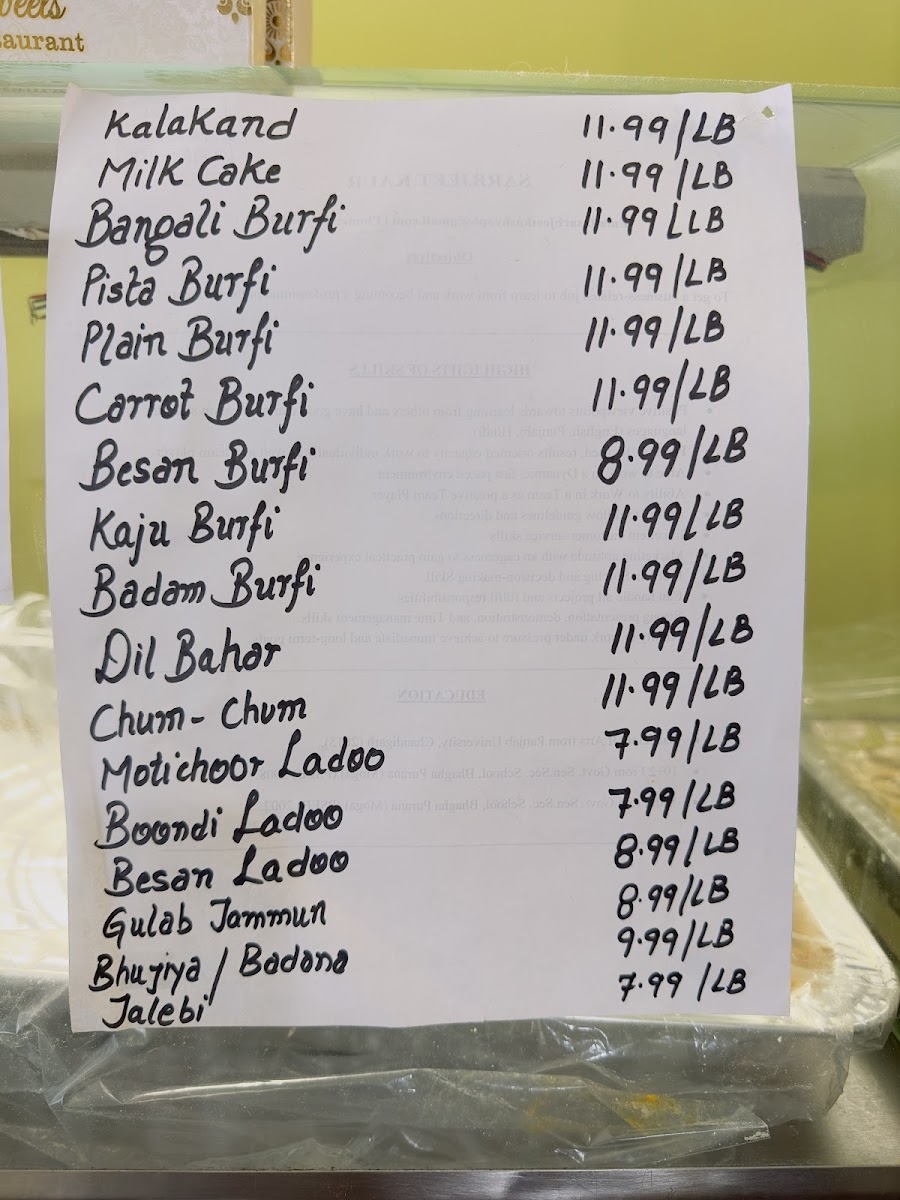 eets
aurant
Kalakand 11.99/LB
Milk Cake 11.99/LB
Bangali Burfi 11.99/LB
Pista Burfi 11.99/LB
Plain Burfi 11.99/LB
Carrot Burfi 11.99/LB
Besan Burfi 8.99/LB
Kaju Burfi 11.99/LB
Badam Burfi 11.99/LB
Dil Bahar 11.99/LB
Chum-Chum 11.99/LB
Motichoor Ladoo 7.99/LB
Boondi Ladoo 7.99/LB
Besan Ladoo 8.99/LB
Gulab Jammun 8.99/LB
Bhujiya / Badana 9.99/LB
Jalebi 7.99/LB